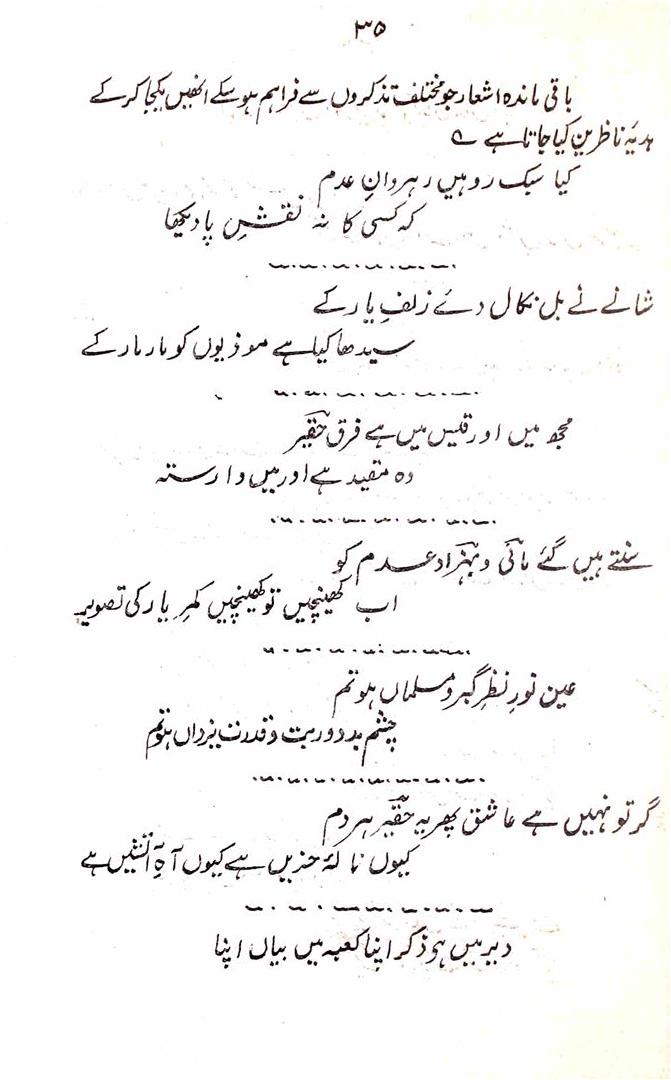 ۳۵
باقی ماندہ اشعار جو مختلف تذکروں سے فراہم ہوسکے انھیں یکجا کرکے
ہدیۂ ناظرین کیا جاتا ہے ؎
کیا سبک رو ہیں رہروانِ عدم
کہ کسی کا نہ نقشِ پا دیکھا
شانے نے بل نکال دۓ زلفِ یار کے
سیدھا کیا ہے موذیوں کو مار مار کے
مجھ میں اور قیس میں ہے فرق حقیرؔ
وہ مقید ہے اور میں وارستہ
سنتے ہیں گئے مانیؔ و بہزادؔ عدم کو
اب کھینچیں تو کھینچیں کمرِ یار کی تصویر
عین نورِ نظرِ گبر و مسلماں ہو تم
چشم بد دور بت و قدرت یزداں ہو تم
گر تو نہیں ہے عاشق پھر یہ حقیرؔ ہر دم
کیوں نالۂ حزیں ہے کیوں آہِ آتشیں ہے
دیر میں ہو ذکر اپنا کعبہ میں بیاں اپنا